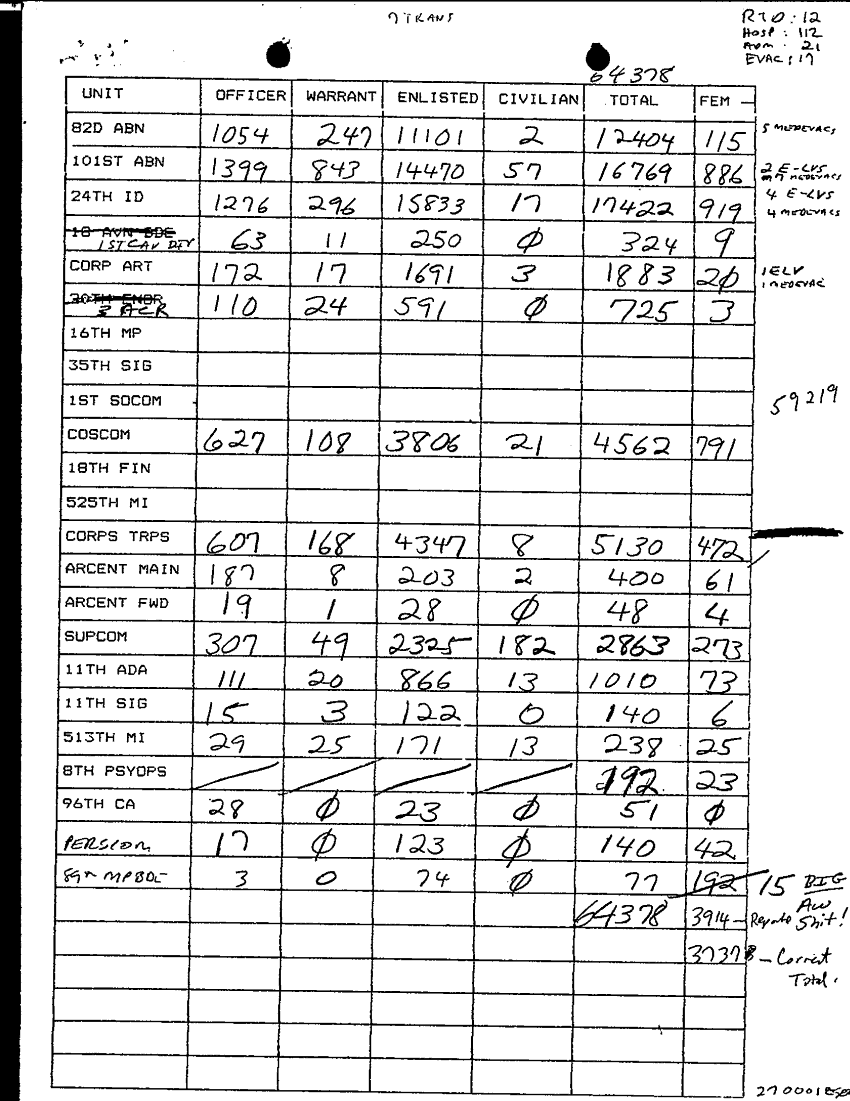 7 TRANS
RTD: 12
HOSP: 112
ADM: 21
EVAC: 17
64378
UNIT OFFICER WARRANT ENLISTED CIVILIAN TOTAL FEM -
82D ABN 1054 247 11101 2 12404 115 5 MEDEVACS
101ST ABN 1399 843 14470 57 16769 886 2 E-LVS MEDEVACS
24TH ID 1276 296 15833 17 17422 919 4 E-LVS
4 MEDEVACS
18 AVN BDE
1ST CAV DIV 63 11 250 Ø 324 9
CORP ART 172 17 1691 3 1883 2Ø 1 ELV
1 MEDEVAC
20TH ENGR
3 ACR 110 24 591 Ø 725 3
16TH MP
35TH SIG
1ST SOCOM 59219
COSCOM 627 108 3806 21 4562 791
18TH FIN
525TH MI
CORPS TRPS 607 168 4347 8 5130 472
ARCENT MAIN 187 8 203 2 400 61
ARCENT FWD 19 1 28 Ø 48 4
SUPCOM 307 49 2325 182 2863 273
11TH ADA 111 20 866 13 1010 73
11TH SIG 15 3 122 0 140 6
513TH MI 29 25 171 13 238 25
8TH PSYOPS 192 23
96TH CA 28 Ø 23 Ø 51 Ø
PERSCOM 17 Ø 123 Ø 140 42
89TH MP BDE 3 0 74 Ø 77 192 15 BIG
AW
64378 3914 - Reporte Shit!
3737 - Correct
Total.